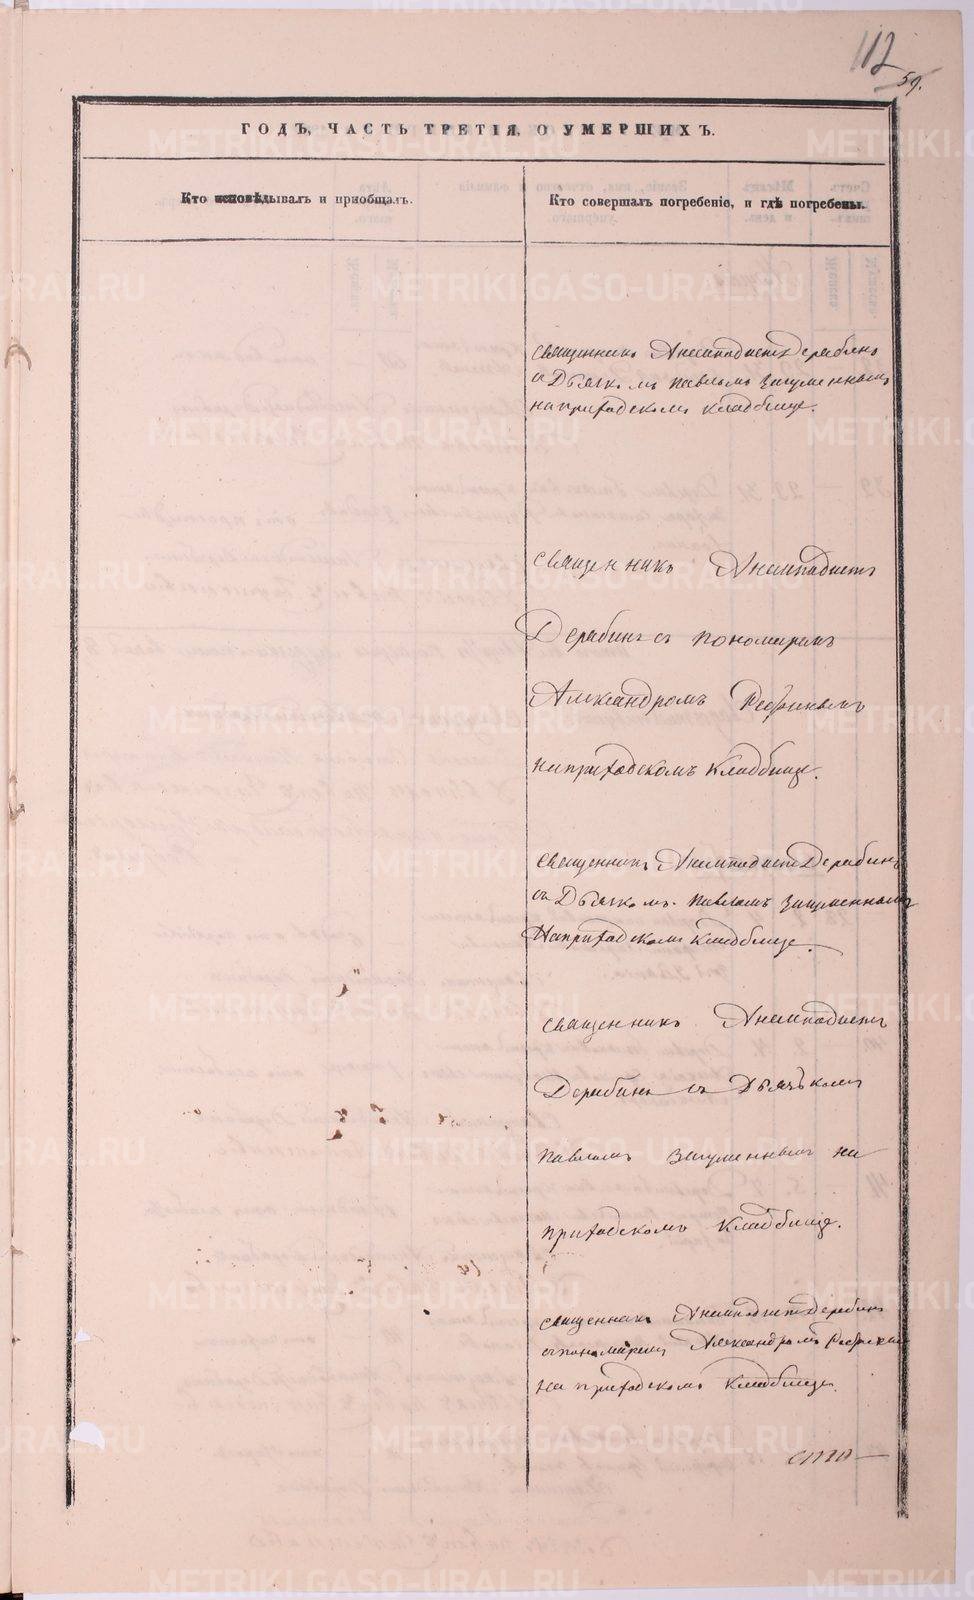 112
59.
ГОДЪ, ЧАСТЬ ТРЕТІЯ, О УМЕРШИХЪ.
Кто исповѣдывалъ и приобщалъ.
Кто совершалъ погребеніе, и гдѣ погребены.
священникъ Анемподистъ Дерябинъ
съ Дьячкомъ Павломъ Загуменнымъ
на приходскомъ кладбище.
священникъ Анемподистъ
Дерябинъ съ пономаремъ
Александромъ
на приходскомъ кладбище.
священникъ Анемподистъ Дерябинъ
съ Дьячкомъ Павломъ Загуменнымъ
На приходскомъ кладбище.
священникъ Анемподистъ
Дерябинъ съ Дьячькомъ
Павломъ Загуменнымъ на
приходскомъ кладбище.
священникъ Анемподистъ Дерябинъ
съ пономаремъ Александромъ
на приходскомъ кладбище.
сто—
METRIKI.GASO-URAL.RU